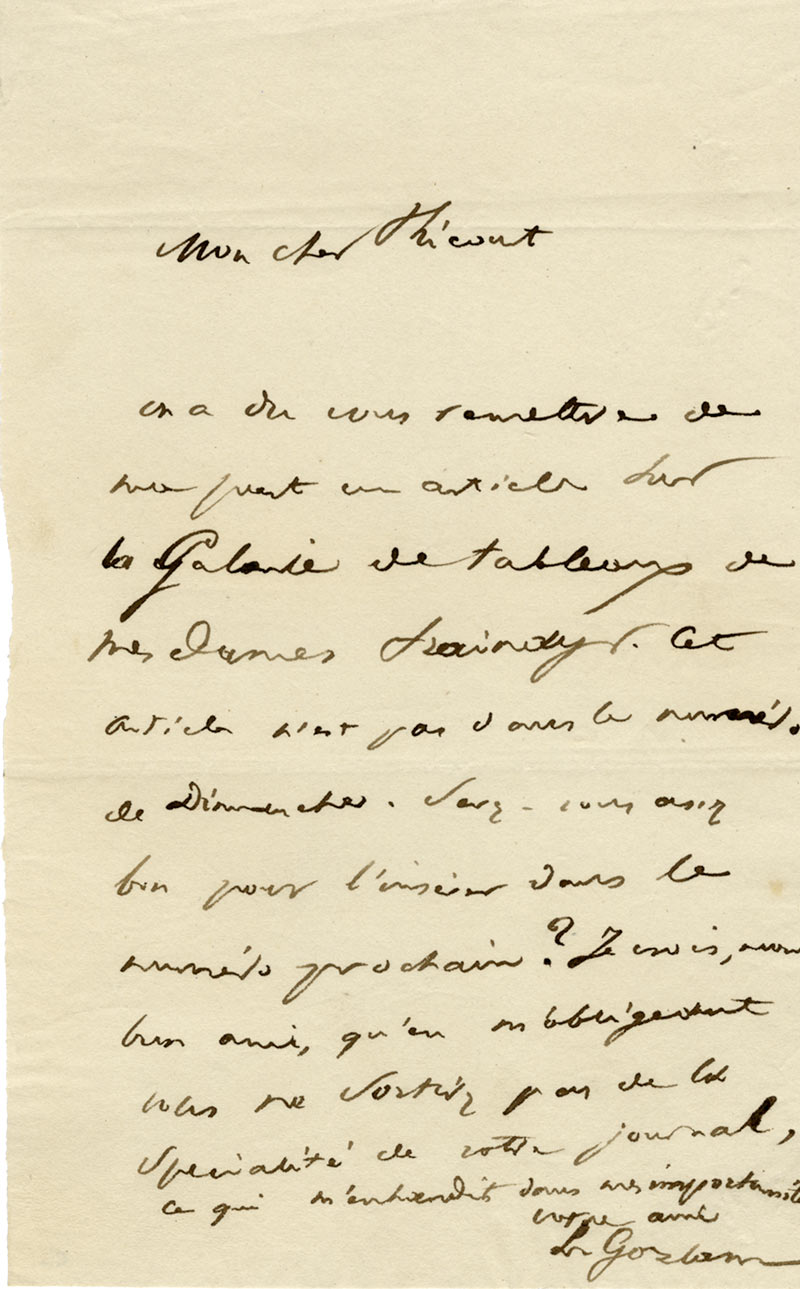 Mon cher Ricourt
on a du vous remettre de
ma part un article sur
la Galerie de tableaux de
mes dames . Cet
article n'est pas dans le numéro
de Dimanche. Serez-vous assez
bon pour l'insérer dans le
numéro prochain? Je crois, mon
bon ami, qu'en m'obligeant
vous ne sortirez pas de la
spécialité de votre journal,
ce qui m'enhardit dans mes
votre ami
Léon Gozlan